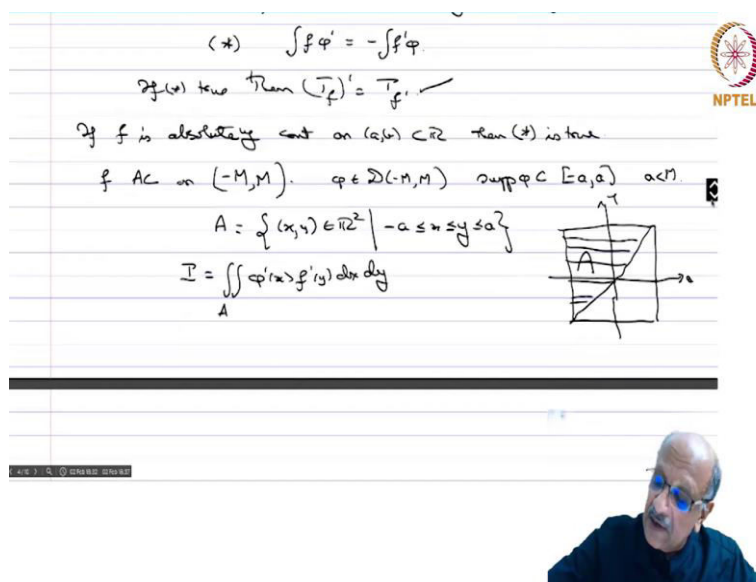 (*) ∫fφ' = -∫f'φ.
If (*) true then (T_f)' = T_f'
If f is absolutely cont on (a,b) ⊂ ℝ then (*) is true
f AC on (-M,M). φ ∈ D(-M,M) supp φ ⊂ [-a,a] a<M.
A = {(x,y) ∈ ℝ² | -a ≤ x ≤ y ≤ a}
I = ∬ φ'(x) f'(y) dx dy
A
A
NPTEL